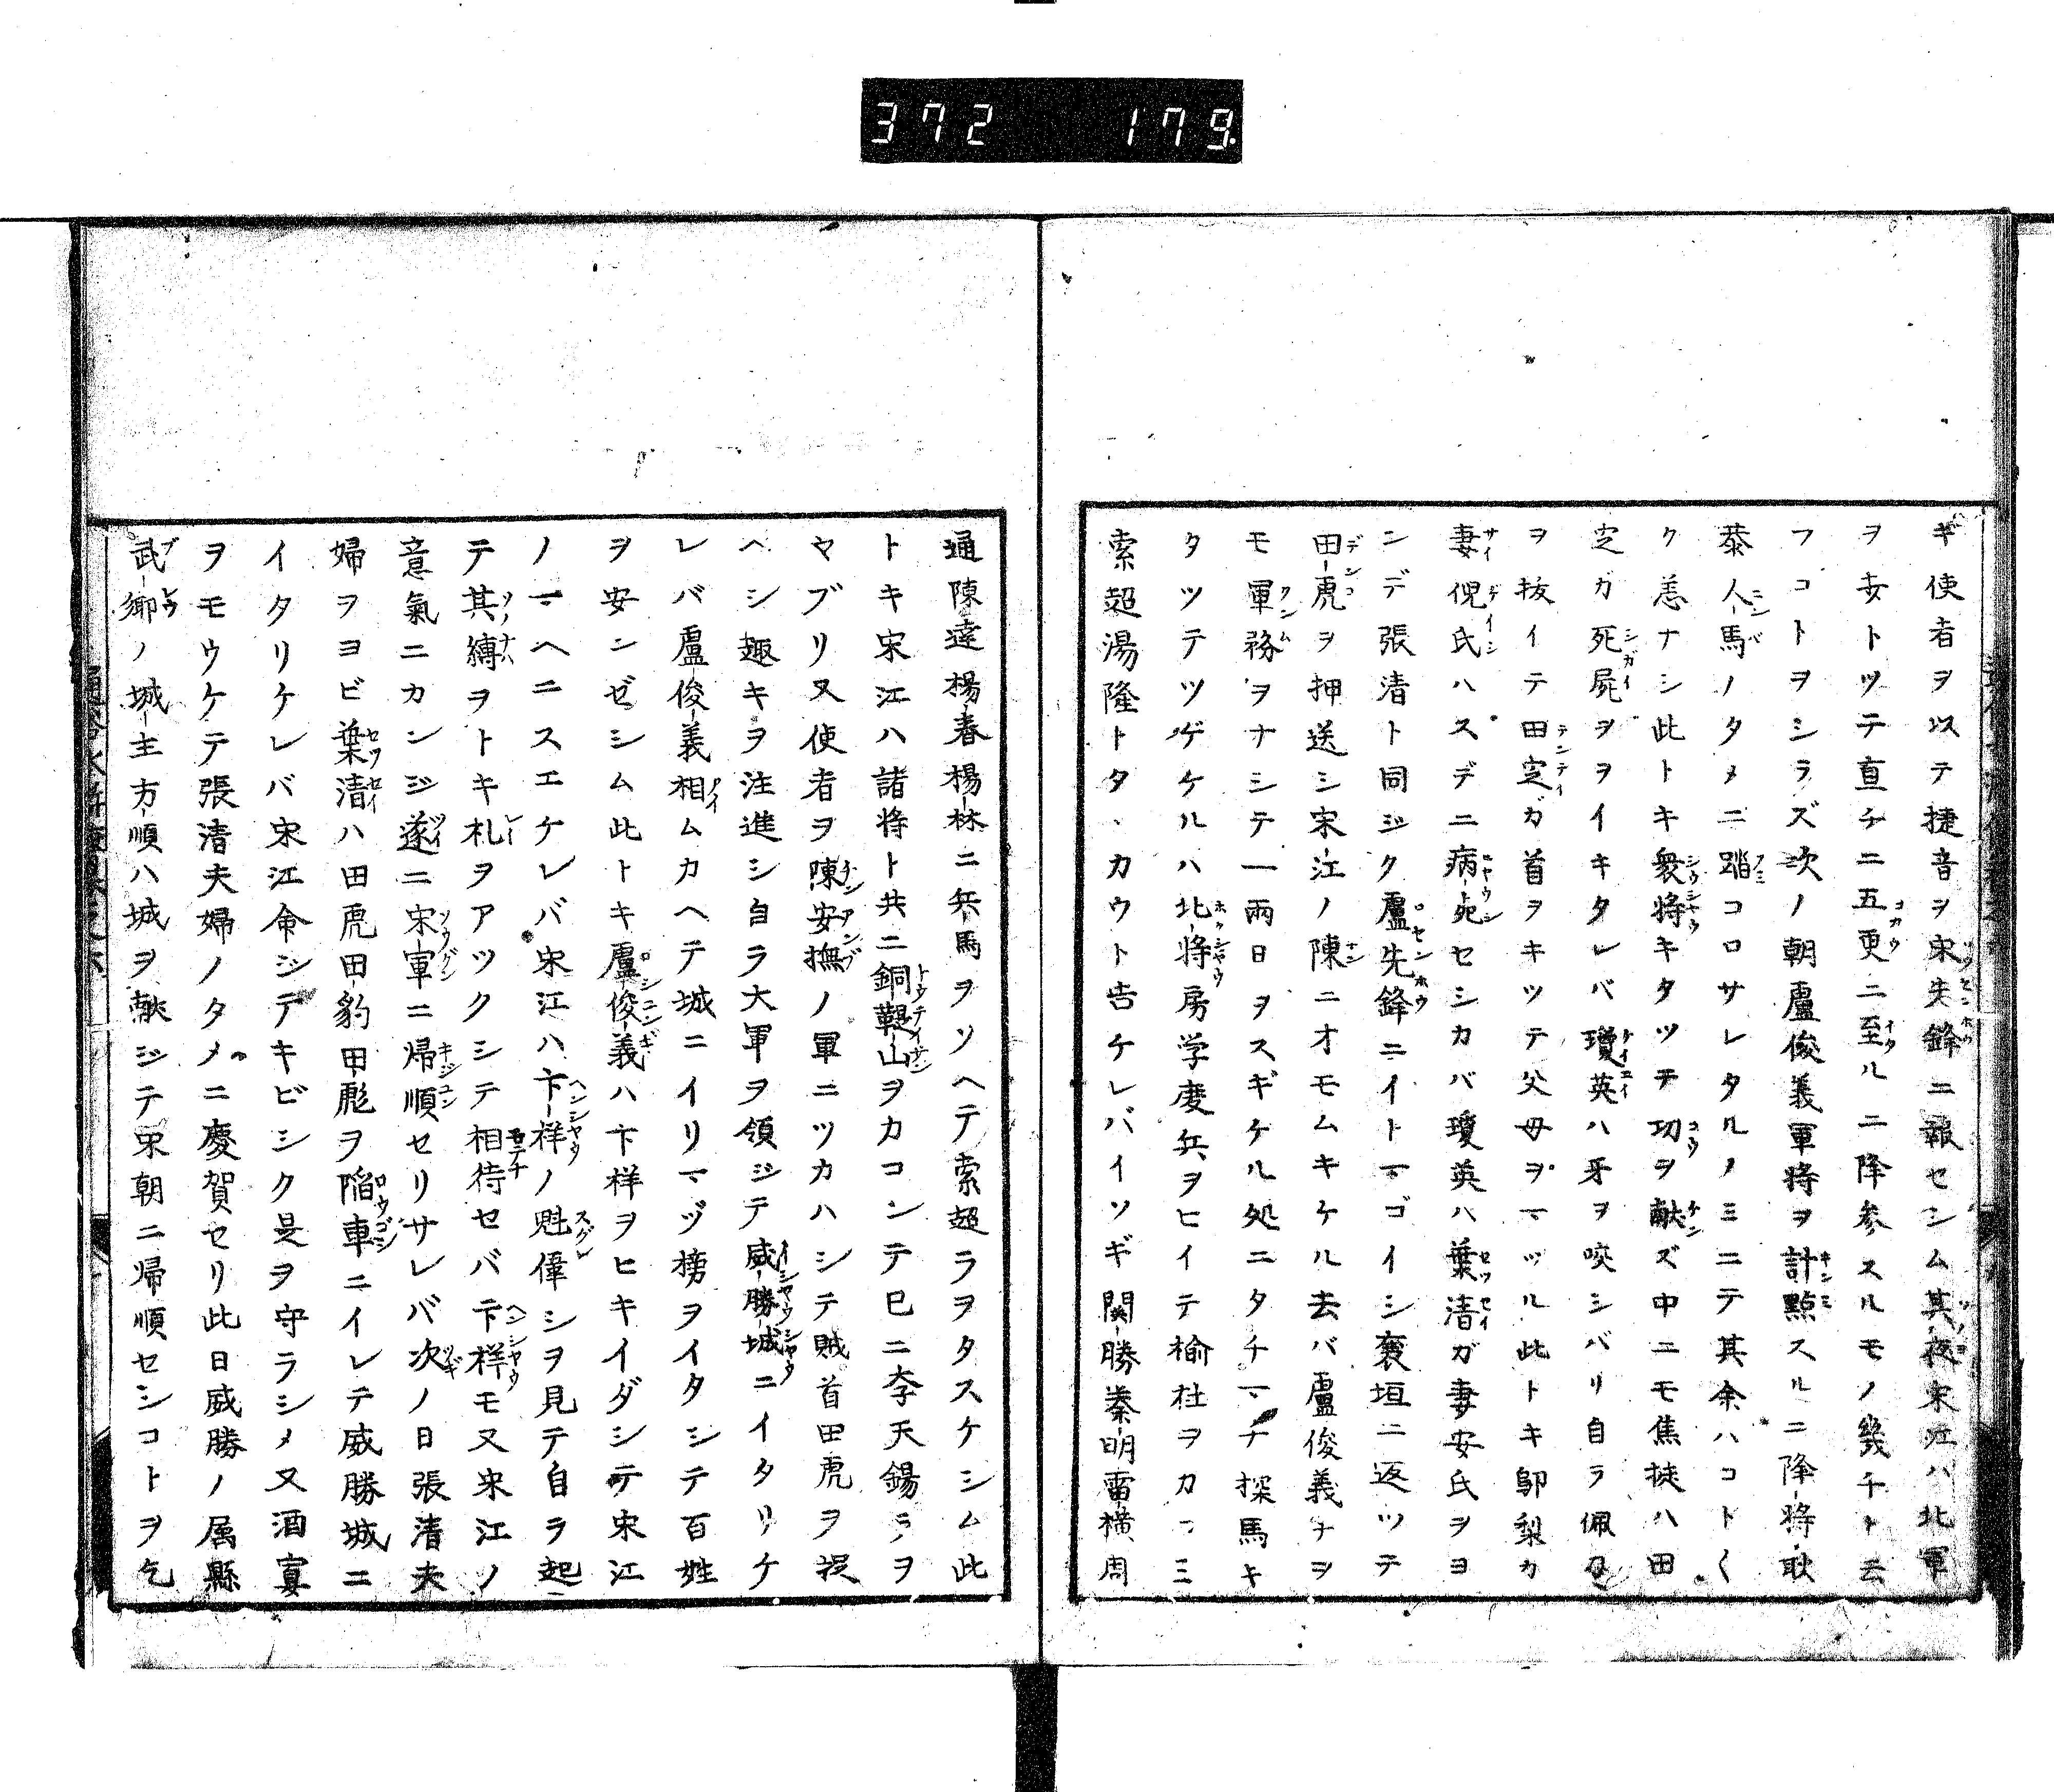 372 179
ギ使者ヲ以テ捷音ヲ宋先鋒ニ報セシム其夜宋江ハ北軍
ヲ女トツテ直チニ五更ニ至ルニ降参スルモノ幾千ト云
フコトヲシラズ次ノ朝盧俊義軍將ヲ計點スルニ降將耿
恭人馬ノタメニ蹈コロサレタルノミニテ其余ハコト〱
ク恙ナシ此トキ衆將キタツテ功ヲ献ズ中ニモ焦挺ハ田
定ガ死屍ヲヲイキタレバ瓊英ハ牙ヲ咬シバリ自ラ佩刀
ヲ抜イテ田定ガ首ヲキツテ父母ヲマツル此トキ鄔梨カ
妻倪氏ハスデニ病死セシカバ瓊英ハ葉清ガ妻安氏ヲヨ
ンデ張清ト同ジク盧先鋒ニイトマゴイシ襄垣ニ返ツテ
田虎ヲ押送シ宋江ノ陳ニオモムキケル去バ盧俊義ナヲ
モ軍務ヲナシテ一兩日ヲスギケル処ニタチマチ探馬キ
タツテツゲケルハ北將房学度兵ヲヒイテ榆社ヲカコミ
索超湯隆トタヽカウト告ケレバイソギ関勝秦明雷横周
通陳達楊春楊林ニ兵馬ヲソヘテ索超ラヲタスケシム此
トキ宋江ハ諸將ト共ニ銅鞮山ヲカコンテ已ニ李天錫ラヲ
ヤブリ又使者ヲ陳安撫ノ軍ニツカハシテ賊首田虎ヲ捉
ヘシ趣キヲ注進シ自ラ大軍ヲ領ジテ威勝城ニイタリケ
レバ盧俊義相ムカヘテ城ニイリマヅ榜ヲイタシテ百姓
ヲ安ンゼシム此トキ盧俊義ハ卞祥ヲヒキイダシテ宋江
ノマヘニスエケレバ宋江ハ卞祥ノ魁偉シヲ見テ自ラ起
テ其縛ヲトキ礼ヲアツクシテ相待セバ卞祥モ又宋江ノ
意氣ニカンジ遂ニ宋軍ニ帰順セリサレバ次ノ日張清夫
婦ヲヨビ葉清ハ田虎田豹田彪ヲ陥車ニイレテ威勝城ニ
イタリケレバ宋江命ジテキビシク是ヲ守ラシメ又酒宴
ヲモウケテ張清夫婦ノタメニ慶賀セリ此日威勝ノ属縣
武郷ノ城主方順ハ城ヲ献ジテ宋朝ニ帰順セシコトヲ乞